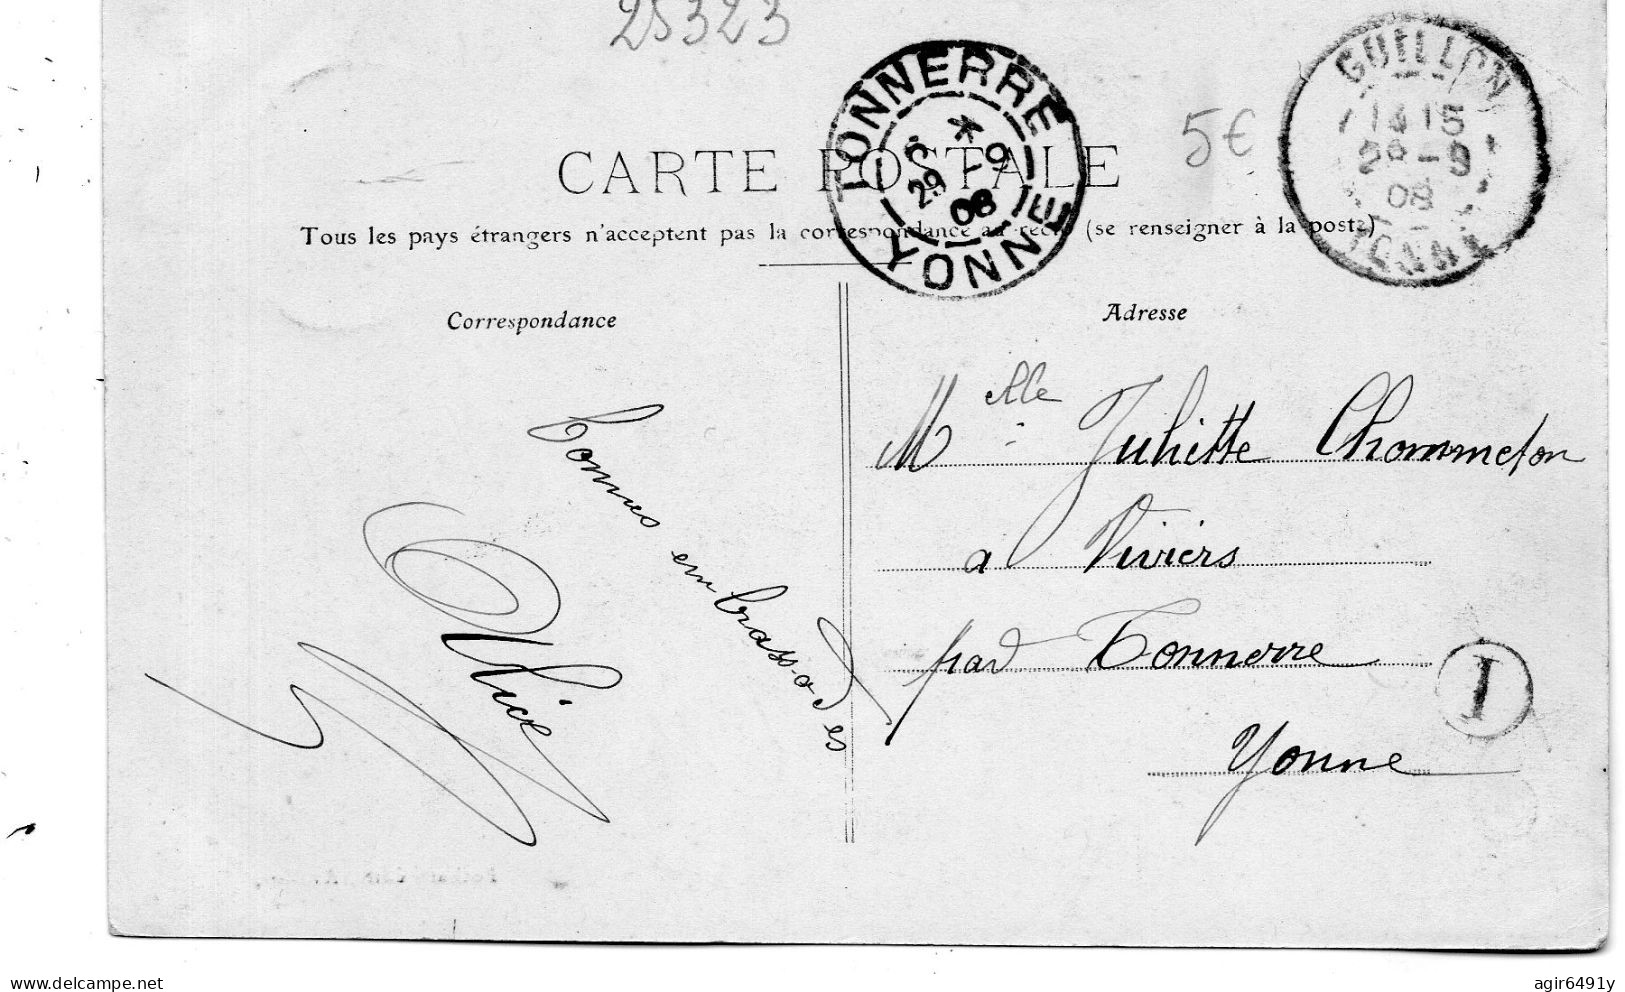 25323
TONNERRE
* 29 -9 08
YONNE
5€
GUILLON
14 15
28 -9
08
YONNE
CARTE POSTALE
Tous les pays étrangers n'acceptent pas la correspondance au recto (se renseigner à la poste)
Correspondance
Adresse
bonnes embrassades
Alice
Melle Juliette Chommeton
a Viviers
par Tonnerre
Yonne
I
www.delcampe.net
agir6491y